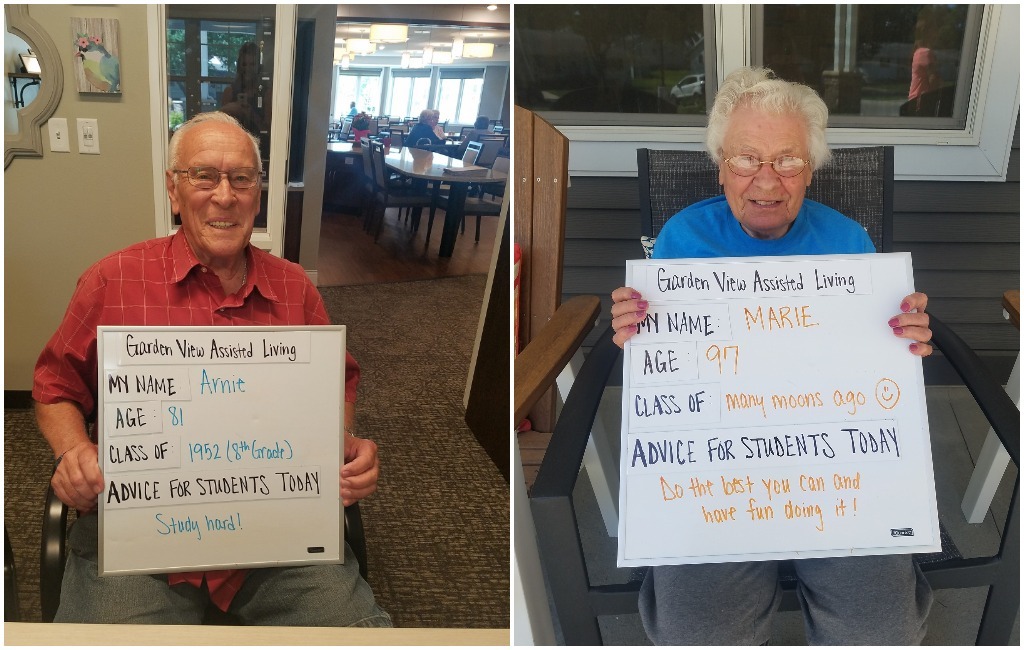 Garden View Assisted Living
MY NAME Arnie
AGE: 81
CLASS OF: 1952 (8th Grade)
ADVICE FOR STUDENTS TODAY
Study hard!
Garden View Assisted Living
MY NAME: MARIE
AGE: 97
CLASS OF: many moons ago
ADVICE FOR STUDENTS TODAY
Do the best you can and
have fun doing it!